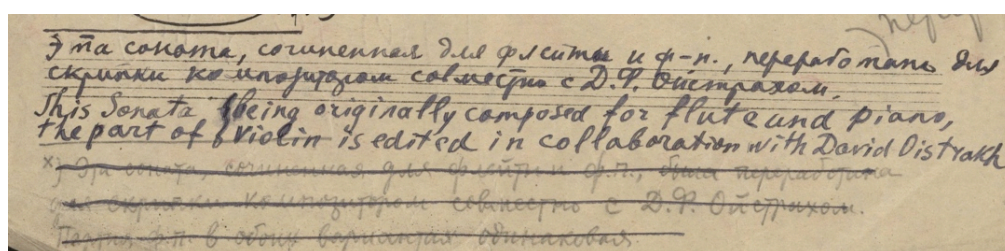 Эта соната, сочиненная для флейты и ф-п., переработана для
скрипки композитором совместно с Д.Ф. Ойстрахом.
This Sonata being originally composed for flute and piano,
the part of violin is edited in collaboration with David Oistrakh
x) Эта соната, сочиненная для флейты и ф.п., была переработана
для скрипки композитором совместно с Д.Ф. Ойстрахом.
Партия ф.п. в обоих вариантах одинаковая.